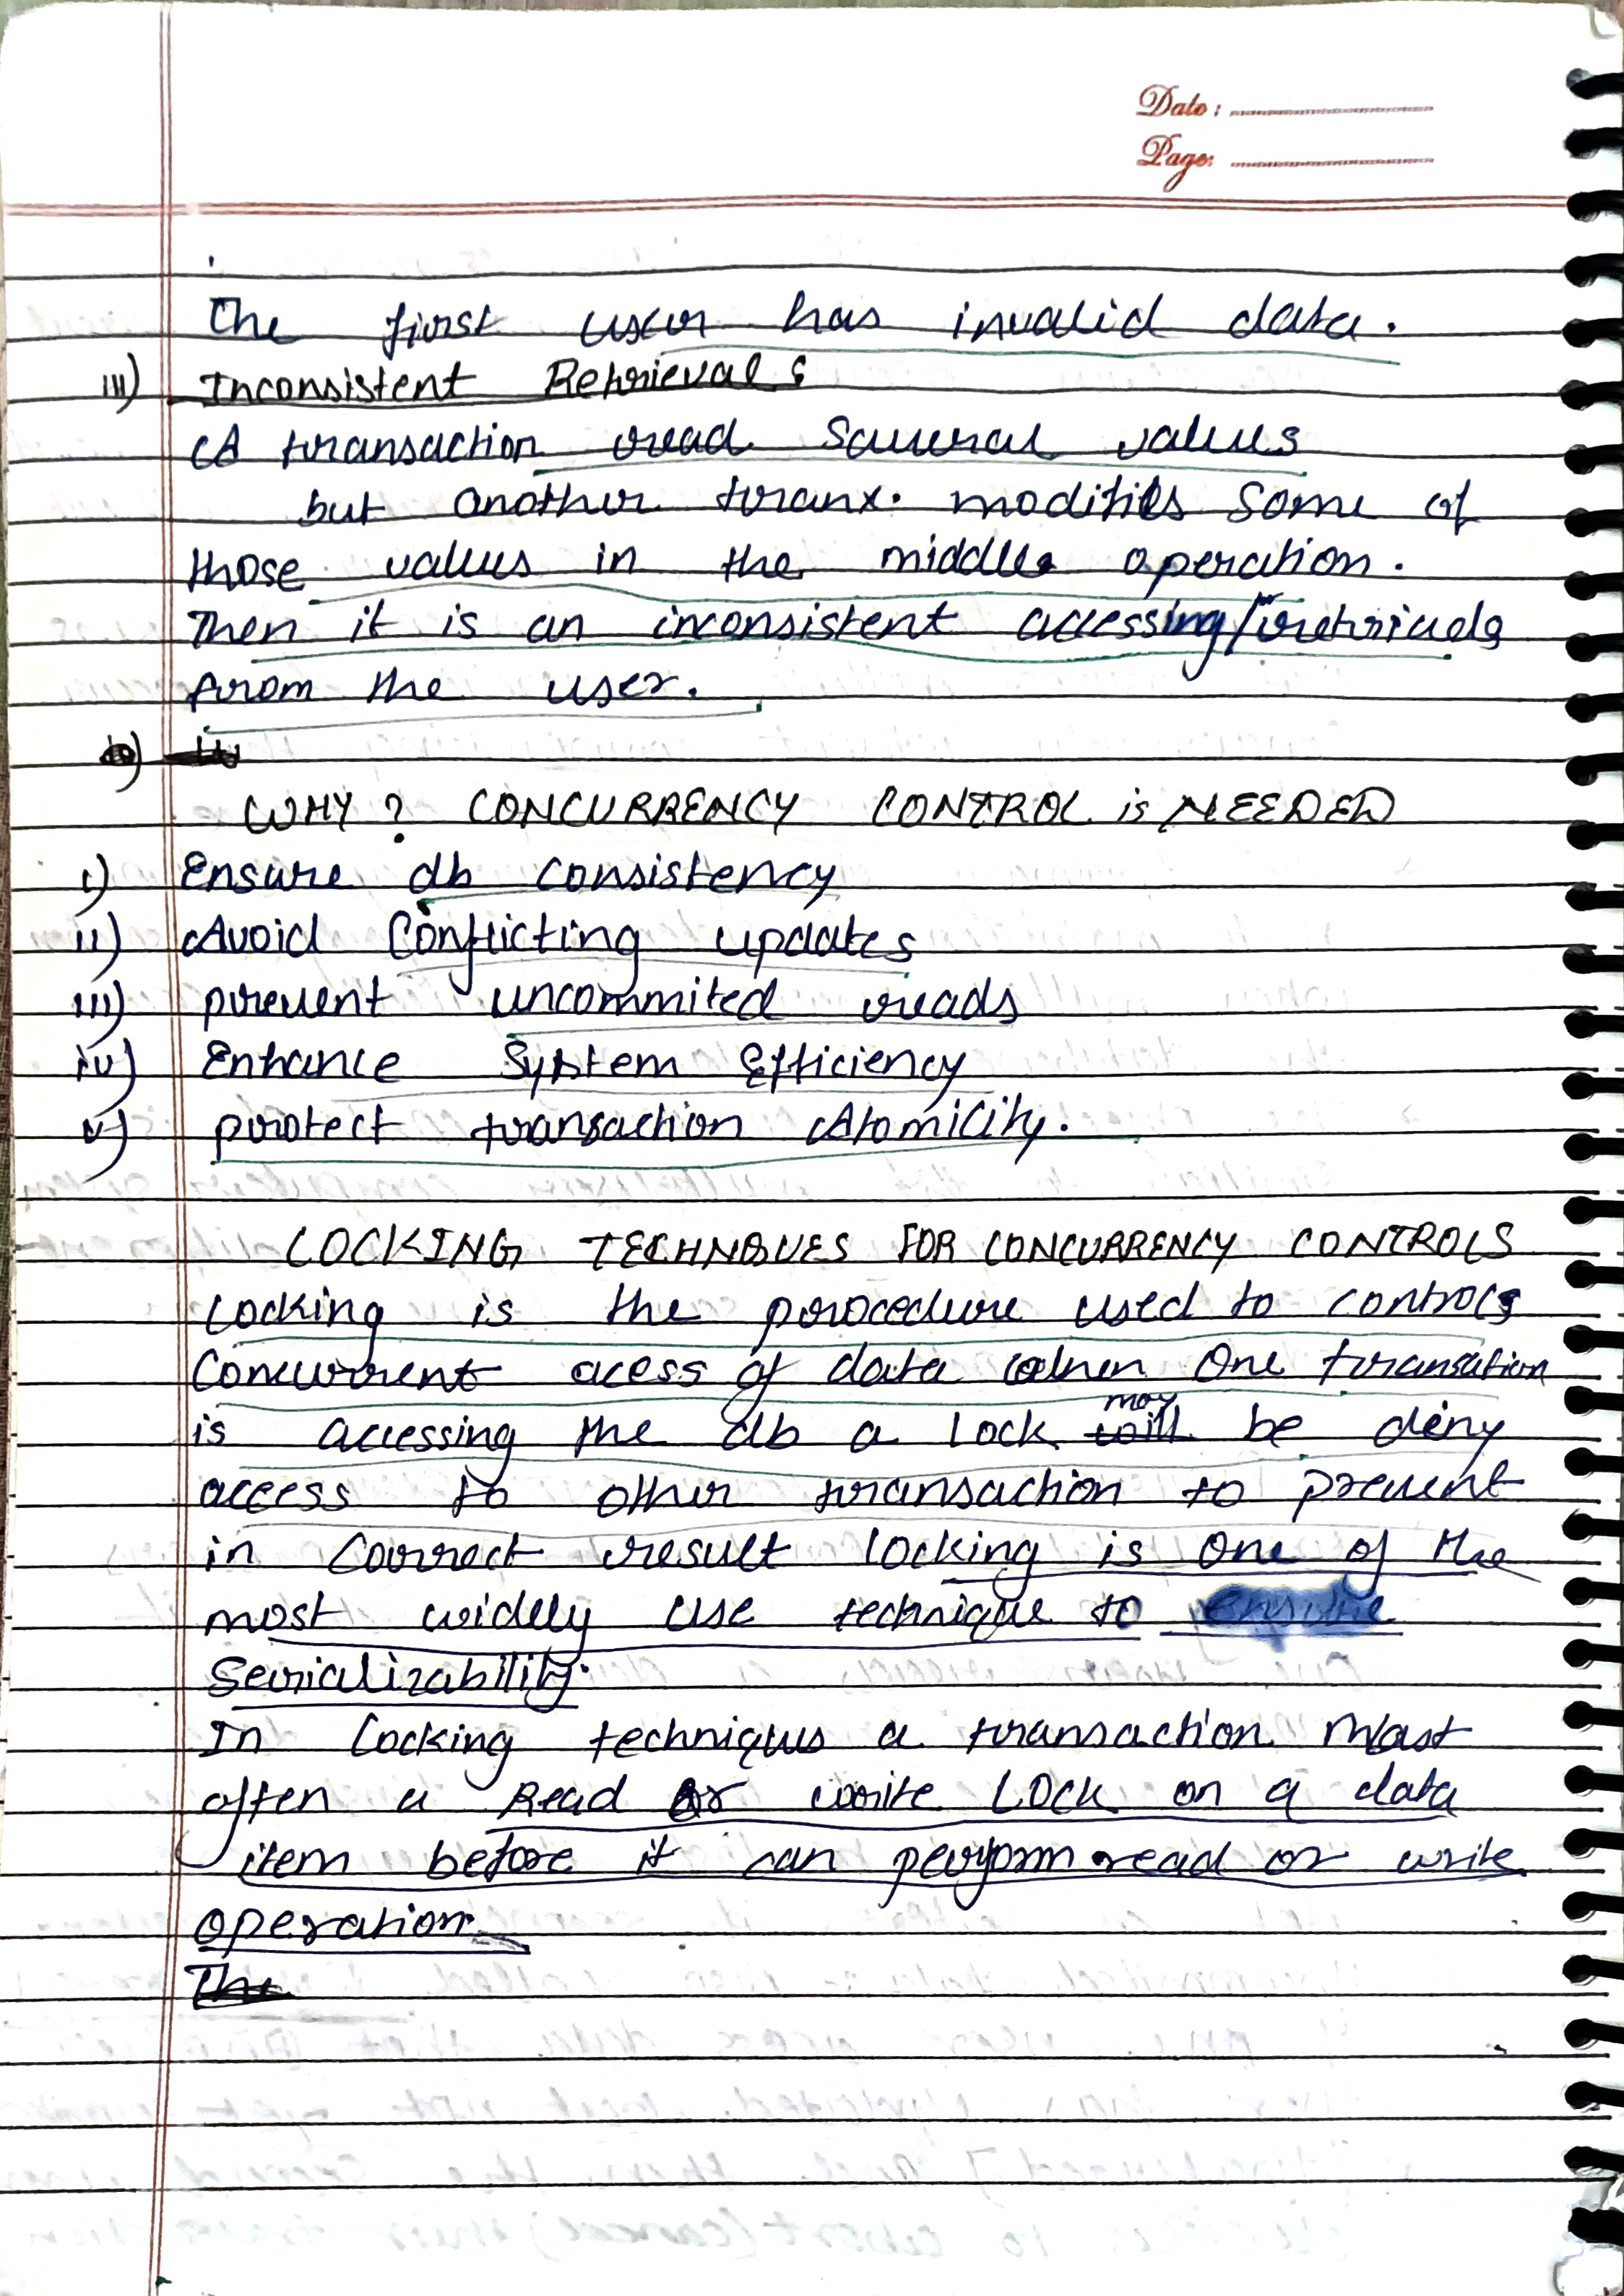 Date :
Page:
The first user has invalid data.
iii) Inconsistent Retrievals
A transaction read saveral values
but another tranx. modifies some of
those values in the middle operation.
Then it is an inconsistent accessing/retrievals
from the user.
WHY? CONCURRENCY CONTROL is NEEDED
i) Ensure db consistency
ii) Avoid Conflicting updates
iii) prevent uncommited reads
iv) Enhance System Efficiency
v) protect transaction Atomicity.
LOCKING TECHNIQUES FOR CONCURRENCY CONTROLS
Locking is the procedure used to controls
Concurrent acess of data when One transation
is accessing the db a lock may be deny
access to other transaction to prevent
in Correct result locking is One of the
most widely use technique to ensure
Serializability.
In locking techniques a transaction Must
often a Read or write Lock on a data
item before it can perform read or write
operation.
The